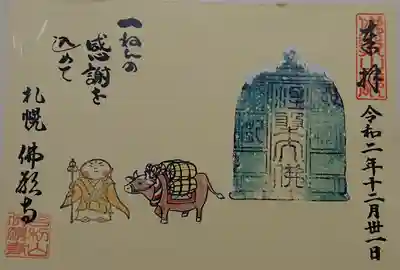 来拝
令和二年十二月卅一日
一ねんの
感謝を
込めて
札幌 佛願寺